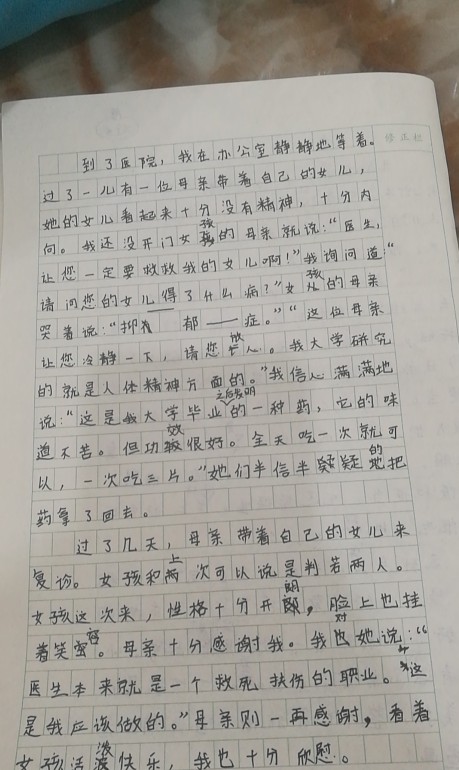 修正栏
到了医院，我在办公室静静地等着。
过了一儿有一位母亲带着自己的女儿，
她的女儿看起来十分没有精神，十分内
向。我还没开门女孩的母亲就说：“医生，
让您一定要救救我的女儿啊！”我询问道：“
请问您的女儿得了什么病？”女孩的母亲
哭着说：“抑 郁——症。”“这位母亲
让您冷静一下，请您放心。我大学研究
的就是人体精神方面的。”我信心满满地
说：“这是我大学毕业之后发明的一种药，它的味
道不苦。但功效很好。全天吃一次就可
以，一次吃三片。”她们半信半疑疑的地把
药拿了回去。
过了几天，母亲带着自己的女儿来
复诊。女孩和上两次可以说是判若两人。
女孩这次来，性格十分开朗，脸上也挂
着笑容。母亲十分感谢我。我对她说：“
医生本来就是一个救死扶伤的职业。这
是我应该做的。”母亲则一再感谢，看着
女孩活泼快乐，我也十分欣慰。